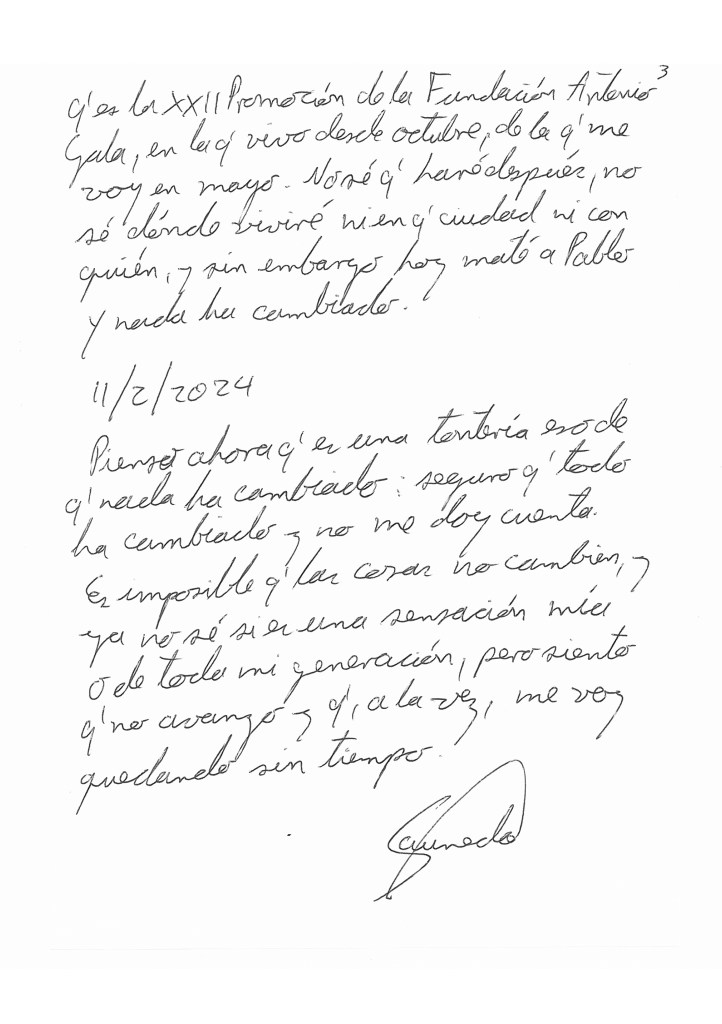 3
q' es la XXII Promoción de la Fundación Antonio
Gala, en la q' vivo desde octubre, de la q' me
voy en mayo. No sé q' haré después, no
sé dónde viviré ni en q' ciudad ni con
quién, y sin embargo hoy maté a Pablo
y nada ha cambiado.
11/2/2024
Pienso ahora q' es una tontería eso de
q' nada ha cambiado: seguro q' todo
ha cambiado y no me doy cuenta.
Es imposible q' las cosas no cambien, y
ya no sé si es una sensación mía
o de toda mi generación, pero siento
q' no avanzo y q', a la vez, me voy
quedando sin tiempo.